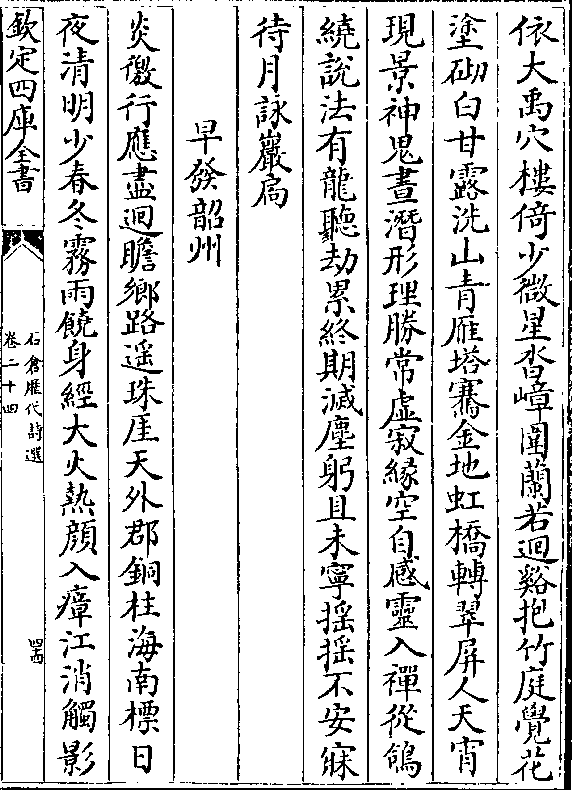 依大禹穴樓倚少微星沓嶂圍蘭若迴谿抱竹庭覺花
塗砌白甘露洗山青雁塔騫金地虹橋轉翠屏人天宵
現景神鬼晝潛形理勝常虚寂縁空自感靈入禪從鴿
繞説法有龍聽劫累終期滅塵躬且未寧摇摇不安寐
待月詠巖扃
早發韶州
炎徼行應盡迴瞻鄉路遥珠厓天外郡銅柱海南標日
夜清明少春冬霧雨饒身經大火熱顔入瘴江消觸影
欽定四庫全書
石倉歷代詩選
卷二十四
四西